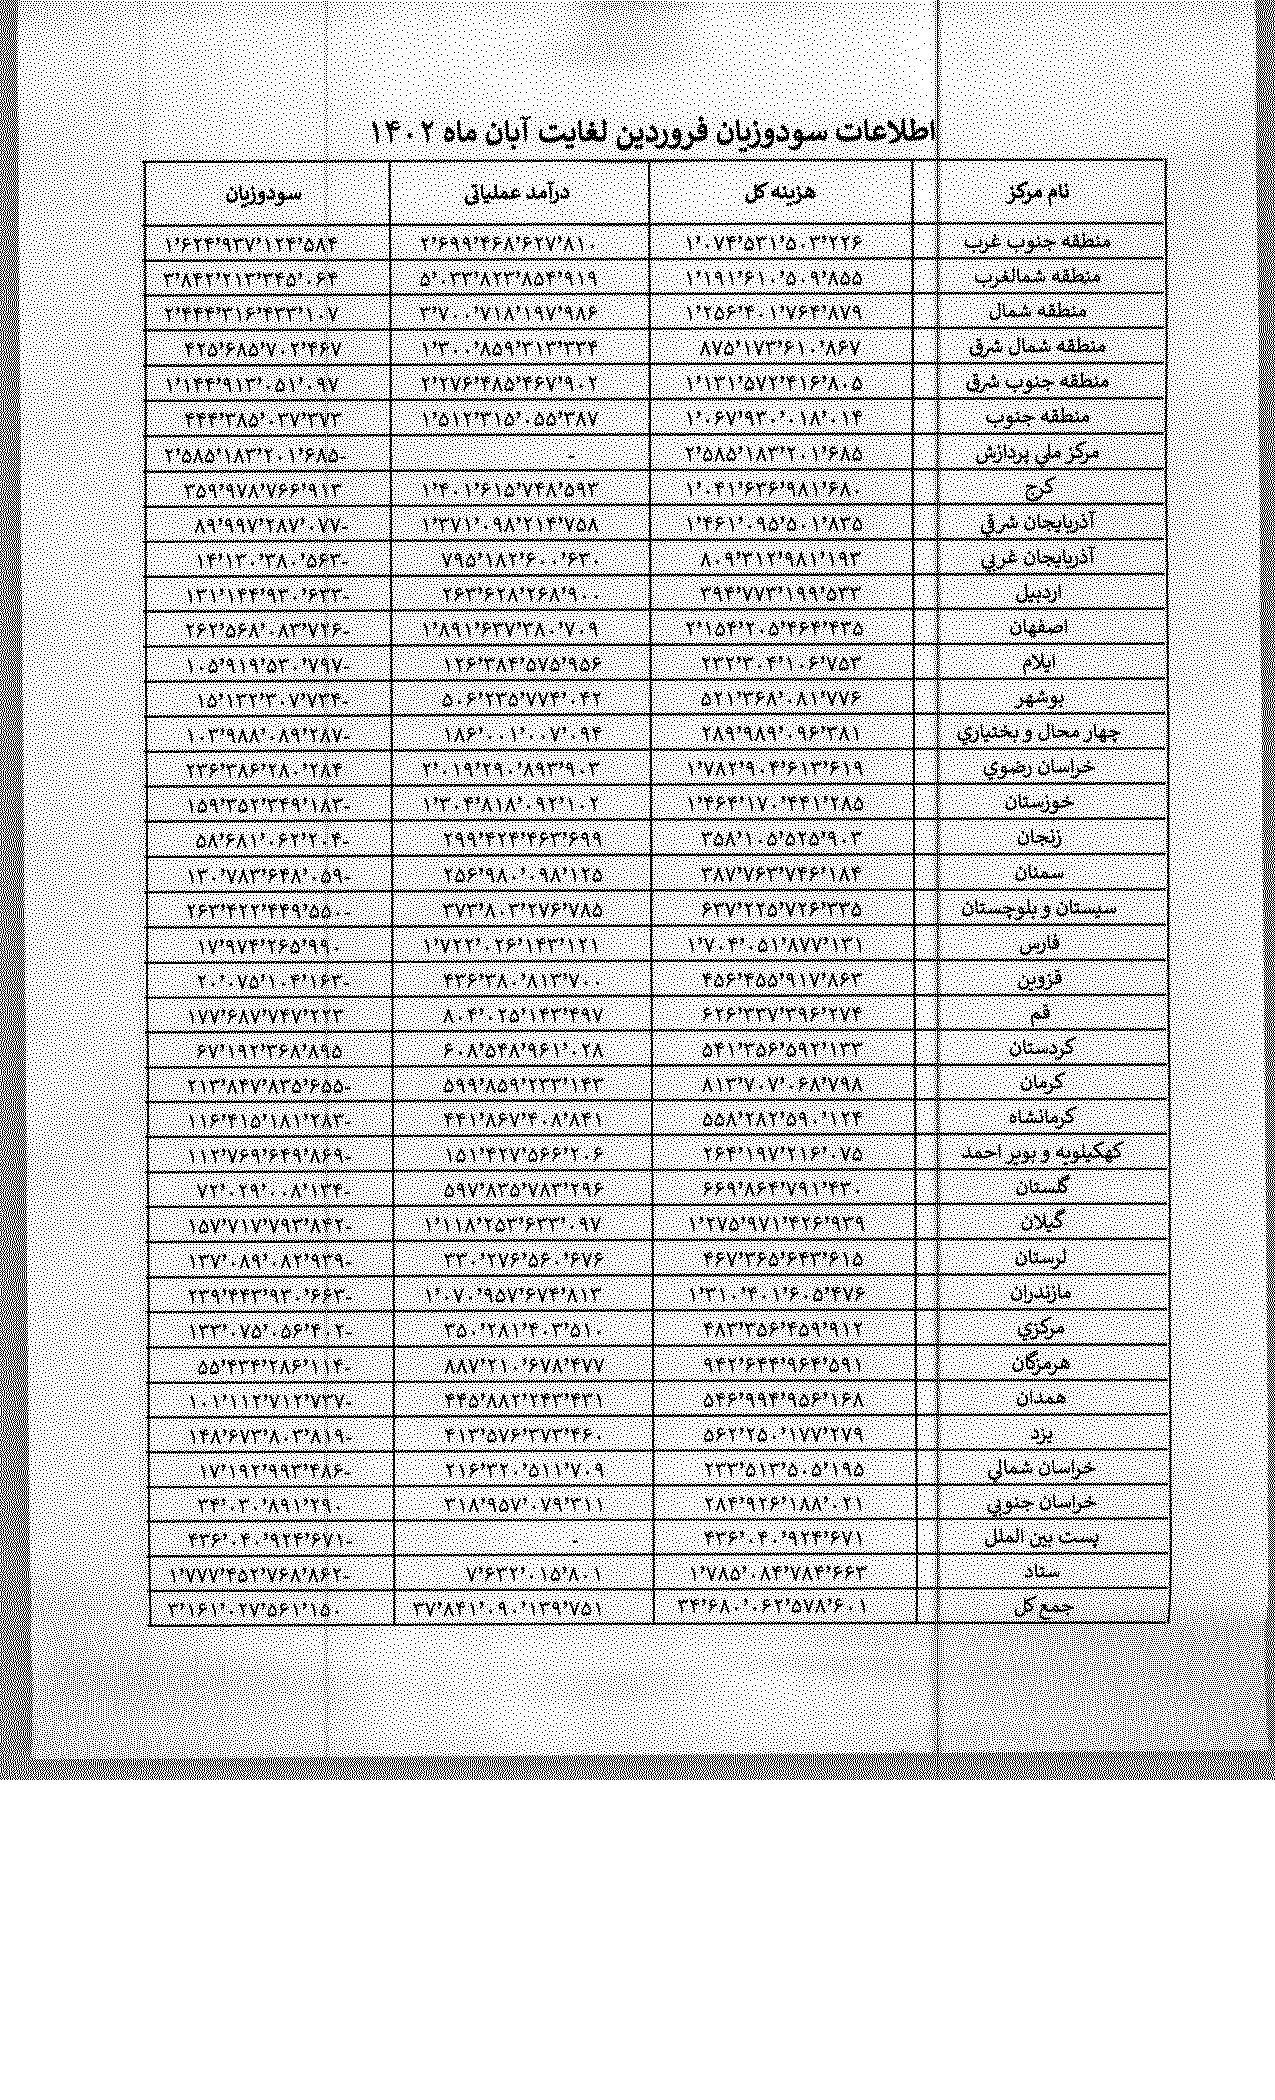 اطلاعات سودوزیان فروردین لغایت آبان ماه ۱۴۰۲
نام مرکز هزینه کل درآمد عملیاتی سودوزیان
منطقه جنوب غرب ۱٬۰۷۴٬۵۳۱٬۵۰۳٬۲۲۶ ۲٬۶۹۹٬۴۶۸٬۶۲۷٬۸۱۰ ۱٬۶۲۴٬۹۳۷٬۱۲۴٬۵۸۴
منطقه شمالغرب ۱٬۱۹۱٬۶۱۰٬۵۰۹٬۸۵۵ ۵٬۰۳۳٬۸۲۳٬۸۵۴٬۹۱۹ ۳٬۸۴۲٬۲۱۳٬۳۴۵٬۰۶۴
منطقه شمال ۱٬۲۵۶٬۴۰۱٬۷۶۴٬۸۷۹ ۳٬۷۰۰٬۷۱۸٬۱۹۷٬۹۸۶ ۲٬۴۴۴٬۳۱۶٬۴۳۳٬۱۰۷
منطقه شمال شرق ۸۷۵٬۱۷۳٬۶۱۰٬۸۶۷ ۱٬۳۰۰٬۸۵۹٬۳۱۳٬۳۳۴ ۴۲۵٬۶۸۵٬۷۰۲٬۴۶۷
منطقه جنوب شرق ۱٬۱۳۱٬۵۷۲٬۴۱۶٬۸۰۵ ۲٬۲۷۶٬۴۸۵٬۴۶۷٬۹۰۲ ۱٬۱۴۴٬۹۱۳٬۰۵۱٬۰۹۷
منطقه جنوب ۱٬۰۶۷٬۹۳۰٬۰۱۸٬۰۱۴ ۱٬۵۱۲٬۳۱۵٬۰۵۵٬۳۸۷ ۴۴۴٬۳۸۵٬۰۳۷٬۳۷۳
مرکز ملي پردازش ۲٬۵۸۵٬۱۸۳٬۲۰۱٬۶۸۵ - ۲٬۵۸۵٬۱۸۳٬۲۰۱٬۶۸۵-
کرج ۱٬۰۴۱٬۶۳۶٬۹۸۱٬۶۸۰ ۱٬۴۰۱٬۶۱۵٬۷۴۸٬۵۹۳ ۳۵۹٬۹۷۸٬۷۶۶٬۹۱۳
آذربایجان شرقي ۱٬۴۶۱٬۰۹۵٬۵۰۱٬۸۳۵ ۱٬۳۷۱٬۰۹۸٬۲۱۴٬۷۵۸ ۸۹٬۹۹۷٬۲۸۷٬۰۷۷-
آذربایجان غربي ۸۰۹٬۳۱۲٬۹۸۱٬۱۹۳ ۷۹۵٬۱۸۲٬۶۰۰٬۶۳۰ ۱۴٬۱۳۰٬۳۸۰٬۵۶۳-
اردبیل ۳۹۴٬۷۷۳٬۱۹۹٬۵۳۳ ۲۶۳٬۶۲۸٬۲۶۸٬۹۰۰ ۱۳۱٬۱۴۴٬۹۳۰٬۶۳۳-
اصفهان ۲٬۱۵۴٬۲۰۵٬۴۶۴٬۴۳۵ ۱٬۸۹۱٬۶۳۷٬۳۸۰٬۷۰۹ ۲۶۲٬۵۶۸٬۰۸۳٬۷۲۶-
ایلام ۲۳۲٬۳۰۴٬۱۰۶٬۷۵۳ ۱۲۶٬۳۸۴٬۵۷۵٬۹۵۶ ۱۰۵٬۹۱۹٬۵۳۰٬۷۹۷-
بوشهر ۵۲۱٬۳۶۸٬۰۸۱٬۷۷۶ ۵۰۶٬۲۳۵٬۷۷۴٬۰۴۲ ۱۵٬۱۳۲٬۳۰۷٬۷۳۴-
چهار محال و بختیاري ۲۸۹٬۹۸۹٬۰۹۶٬۳۸۱ ۱۸۶٬۰۰۱٬۰۰۷٬۰۹۴ ۱۰۳٬۹۸۸٬۰۸۹٬۲۸۷-
خراسان رضوي ۱٬۷۸۲٬۹۰۴٬۶۱۳٬۶۱۹ ۲٬۰۱۹٬۲۹۰٬۸۹۳٬۹۰۳ ۲۳۶٬۳۸۶٬۲۸۰٬۲۸۴
خوزستان ۱٬۴۶۴٬۱۷۰٬۴۴۱٬۲۸۵ ۱٬۳۰۴٬۸۱۸٬۰۹۲٬۱۰۲ ۱۵۹٬۳۵۲٬۳۴۹٬۱۸۳-
زنجان ۳۵۸٬۱۰۵٬۵۲۵٬۹۰۳ ۲۹۹٬۴۲۴٬۴۶۳٬۶۹۹ ۵۸٬۶۸۱٬۰۶۲٬۲۰۴-
سمنان ۳۸۷٬۷۶۳٬۷۴۶٬۱۸۴ ۲۵۶٬۹۸۰٬۰۹۸٬۱۲۵ ۱۳۰٬۷۸۳٬۶۴۸٬۰۵۹-
سیستان و بلوچستان ۶۳۷٬۲۲۵٬۷۲۶٬۳۳۵ ۳۷۳٬۸۰۳٬۲۷۶٬۷۸۵ ۲۶۳٬۴۲۲٬۴۴۹٬۵۵۰-
فارس ۱٬۷۰۴٬۰۵۱٬۸۷۷٬۱۳۱ ۱٬۷۲۲٬۰۲۶٬۱۴۳٬۱۲۱ ۱۷٬۹۷۴٬۲۶۵٬۹۹۰
قزوین ۴۵۶٬۴۵۵٬۹۱۷٬۸۶۳ ۴۳۶٬۳۸۰٬۸۱۳٬۷۰۰ ۲۰٬۰۷۵٬۱۰۴٬۱۶۳-
قم ۶۲۶٬۳۳۷٬۳۹۶٬۲۷۴ ۸۰۴٬۰۲۵٬۱۴۳٬۴۹۷ ۱۷۷٬۶۸۷٬۷۴۷٬۲۲۳
کردستان ۵۴۱٬۳۵۶٬۵۹۲٬۱۳۳ ۶۰۸٬۵۴۸٬۹۶۱٬۰۲۸ ۶۷٬۱۹۲٬۳۶۸٬۸۹۵
کرمان ۸۱۳٬۷۰۷٬۰۶۸٬۷۹۸ ۵۹۹٬۸۵۹٬۲۳۳٬۱۴۳ ۲۱۳٬۸۴۷٬۸۳۵٬۶۵۵-
کرمانشاه ۵۵۸٬۲۸۲٬۵۹۰٬۱۲۴ ۴۴۱٬۸۶۷٬۴۰۸٬۸۴۱ ۱۱۶٬۴۱۵٬۱۸۱٬۲۸۳-
کهکیلویه و بویر احمد ۲۶۴٬۱۹۷٬۲۱۶٬۰۷۵ ۱۵۱٬۴۲۷٬۵۶۶٬۲۰۶ ۱۱۲٬۷۶۹٬۶۴۹٬۸۶۹-
گلستان ۶۶۹٬۸۶۴٬۷۹۱٬۴۳۰ ۵۹۷٬۸۳۵٬۷۸۳٬۲۹۶ ۷۲٬۰۲۹٬۰۰۸٬۱۳۴-
گیلان ۱٬۲۷۵٬۹۷۱٬۴۲۶٬۹۳۹ ۱٬۱۱۸٬۲۵۳٬۶۳۳٬۰۹۷ ۱۵۷٬۷۱۷٬۷۹۳٬۸۴۲-
لرستان ۴۶۷٬۳۶۵٬۶۴۳٬۶۱۵ ۳۳۰٬۲۷۶٬۵۶۰٬۶۷۶ ۱۳۷٬۰۸۹٬۰۸۲٬۹۳۹-
مازندران ۱٬۳۱۰٬۴۰۱٬۶۰۵٬۴۷۶ ۱٬۰۷۰٬۹۵۷٬۶۷۴٬۸۱۳ ۲۳۹٬۴۴۳٬۹۳۰٬۶۶۳-
مرکزي ۴۸۳٬۳۵۶٬۴۵۹٬۹۱۲ ۳۵۰٬۲۸۱٬۴۰۳٬۵۱۰ ۱۳۳٬۰۷۵٬۰۵۶٬۴۰۲-
هرمزگان ۹۴۲٬۶۴۴٬۹۶۴٬۵۹۱ ۸۸۷٬۲۱۰٬۶۷۸٬۴۷۷ ۵۵٬۴۳۴٬۲۸۶٬۱۱۴-
همدان ۵۴۶٬۹۹۴٬۹۵۶٬۱۶۸ ۴۴۵٬۸۸۲٬۲۴۳٬۴۳۱ ۱۰۱٬۱۱۲٬۷۱۲٬۷۳۷-
یزد ۵۶۲٬۲۵۰٬۱۷۷٬۲۷۹ ۴۱۳٬۵۷۶٬۳۷۳٬۴۶۰ ۱۴۸٬۶۷۳٬۸۰۳٬۸۱۹-
خراسان شمالي ۲۳۳٬۵۱۳٬۵۰۵٬۱۹۵ ۲۱۶٬۳۲۰٬۵۱۱٬۷۰۹ ۱۷٬۱۹۲٬۹۹۳٬۴۸۶-
خراسان جنوبي ۲۸۴٬۹۲۶٬۱۸۸٬۰۲۱ ۳۱۸٬۹۵۷٬۰۷۹٬۳۱۱ ۳۴٬۰۳۰٬۸۹۱٬۲۹۰
پست بین الملل ۴۳۶٬۰۴۰٬۹۲۴٬۶۷۱ - ۴۳۶٬۰۴۰٬۹۲۴٬۶۷۱-
ستاد ۱٬۷۸۵٬۰۸۴٬۷۸۴٬۶۶۳ ۷٬۶۳۲٬۰۱۵٬۸۰۱ ۱٬۷۷۷٬۴۵۲٬۷۶۸٬۸۶۲-
جمع کل ۳۴٬۶۸۰٬۰۶۲٬۵۷۸٬۶۰۱ ۳۷٬۸۴۱٬۰۹۰٬۱۳۹٬۷۵۱ ۳٬۱۶۱٬۰۲۷٬۵۶۱٬۱۵۰